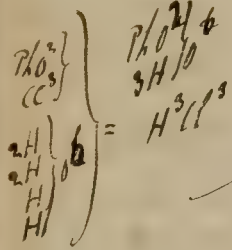 PhO²
Cl³
2H
2H
H
H
O 6
=
PhO² 6
3H O
H³Cl³